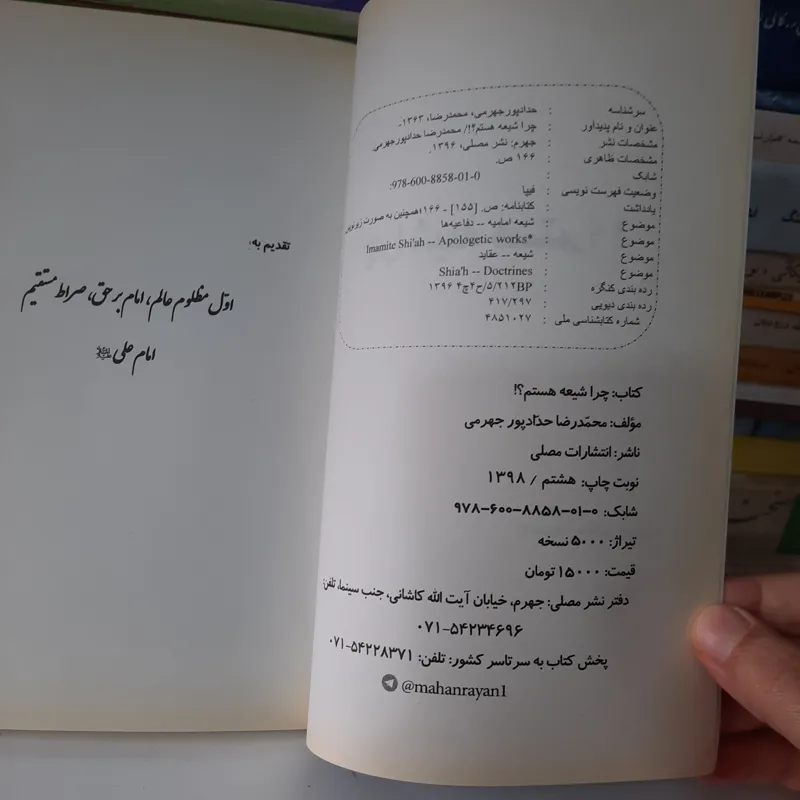 سرشناسه : حدادپورجهرمی، محمدرضا، ۱۳۶۳-
عنوان و نام پدیدآور : چرا شیعه هستم؟!/ محمدرضا حدادپورجهرمی.
مشخصات نشر : جهرم: نشر مصلی، ۱۳۹۶.
مشخصات ظاهری : ۱۶۶ ص.
شابک : 978-600-8858-01-0:
وضعیت فهرست نویسی : فیپا
یادداشت : کتابنامه: ص. [۱۵۵] - ۱۶۶؛ همچنین به صورت زیرنویس
موضوع : شیعه امامیه -- دفاعیه‌ها
موضوع : Imamite Shi'ah -- Apologetic works*
موضوع : شیعه -- عقاید
موضوع : Shia'h -- Doctrines
رده بندی کنگره : ۱۳۹۶ ۴چ۴ح/۵/۲۱۲BP
رده بندی دیویی : ۴۱۷/۲۹۷
شماره کتابشناسی ملی : ۴۸۵۱۰۲۷
کتاب: چرا شیعه هستم؟!
مؤلف: محمّدرضا حدّادپور جهرمی
ناشر: انتشارات مصلی
نوبت چاپ: هشتم / ۱۳۹۸
شابک: ۹۷۸-۶۰۰-۸۸۵۸-۰۱-۰
تیراژ: ۵۰۰۰ نسخه
قیمت: ۱۵۰۰۰ تومان
دفتر نشر مصلی: جهرم، خیابان آیت الله کاشانی، جنب سینما، تلفن:
۰۷۱-۵۴۲۳۴۶۹۶
پخش کتاب به سرتاسر کشور: تلفن: ۰۷۱-۵۴۲۲۸۳۷۱
@mahanrayan1
تقدیم به:
اوّل مظلوم عالم، امام بر حق، صراط مستقیم
امام علی